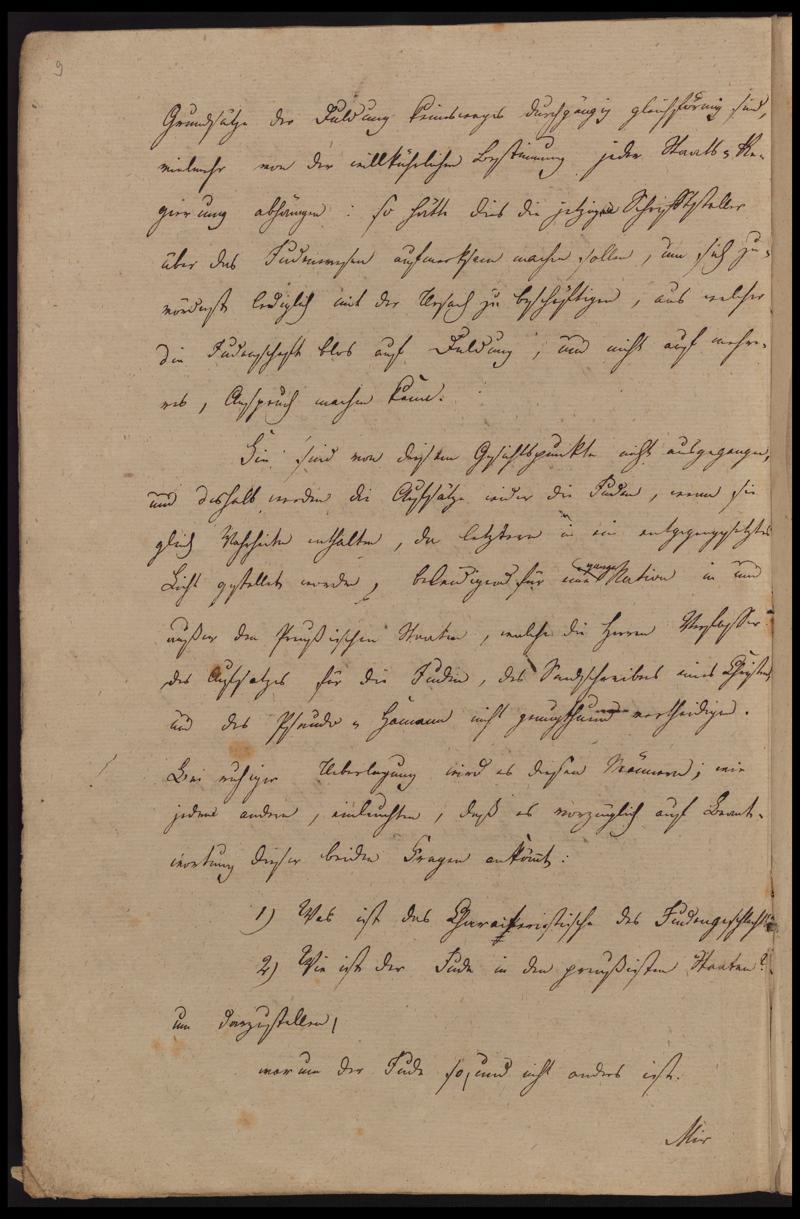 9
Grundsätze der Duldung keinesweges durchgängig gleichförmig sind,
vielmehr von der willkührlichen Bestimmung jeder Staats=Re-
gierung abhängen: so hätte dies die jetzigen Schriftsteller
über das Judenwesen aufmerksam machen sollen, um sich zu-
vörderst lediglich mit der Ursach zu beschäftigen, aus welcher
die Judenschaft blos auf Duldung, und nicht auf mehre-
res, Anspruch machen könne.
Sie sind von diesem Gesichtspunkte nicht ausgegangen,
und deshalb werden die Aufsätze wider die Juden, wenn sie
gleich Wahrheiten enthalten, da letztere in ein entgegengesetztes
Licht gestellet worden, beleidigend für eine ganze Nation in und
außer den Preußischen Staaten, welche die Herren Verfasser
des Aufsatzes für die Juden, des Sendschreibens eines Christen
und des Pseudo=Hamann nicht genugthuend vertheidigen.
Bei ruhiger Ueberlegung wird es diesen Männern, wie
jedem andern, einleuchten, daß es vorzüglich auf Beant-
wortung dieser beiden Fragen ankömmt:
1) Was ist das Charakteristische des Judengeschlechts?
2) Wie ist der Jude in den preußischen Staaten?
um darzustellen,
warum der Jude so, und nicht anders ist.
Mir